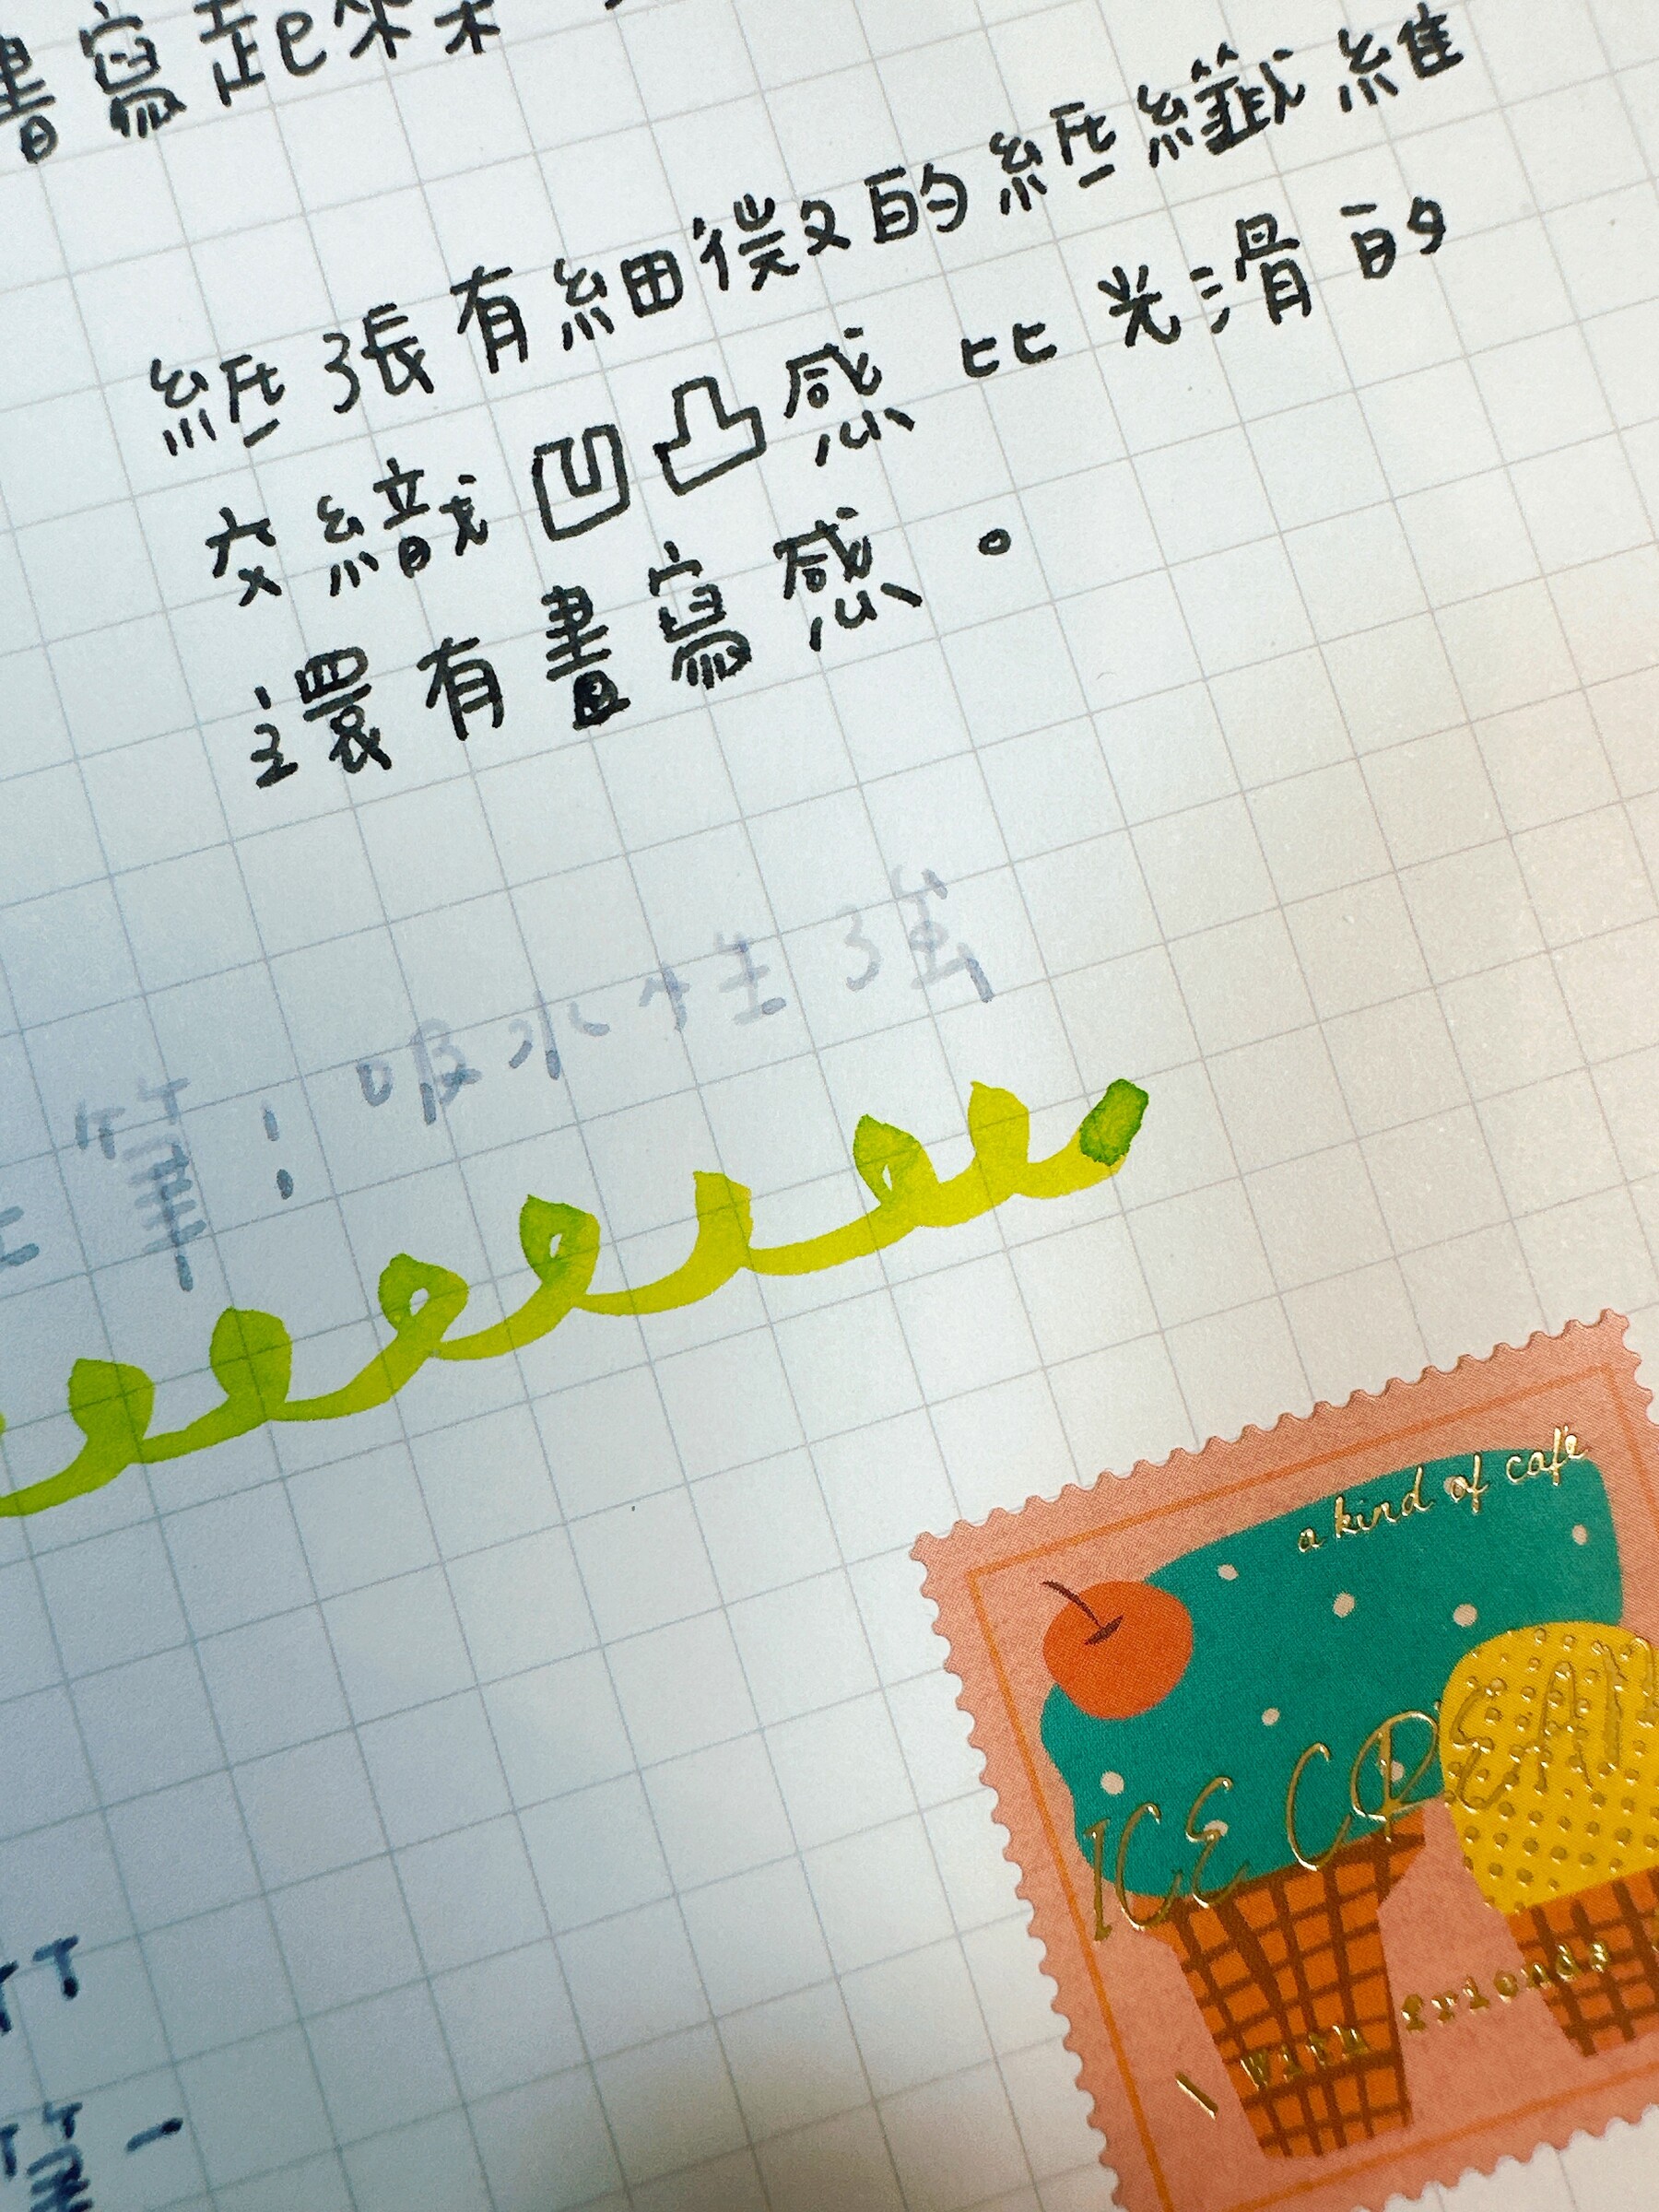 書寫起來
紙張有細微的紙纖維
交織凹凸感 比光滑的
還有書寫感。
筆：吸水性強
a kind of cafe
ICE CREAM
\ with friends